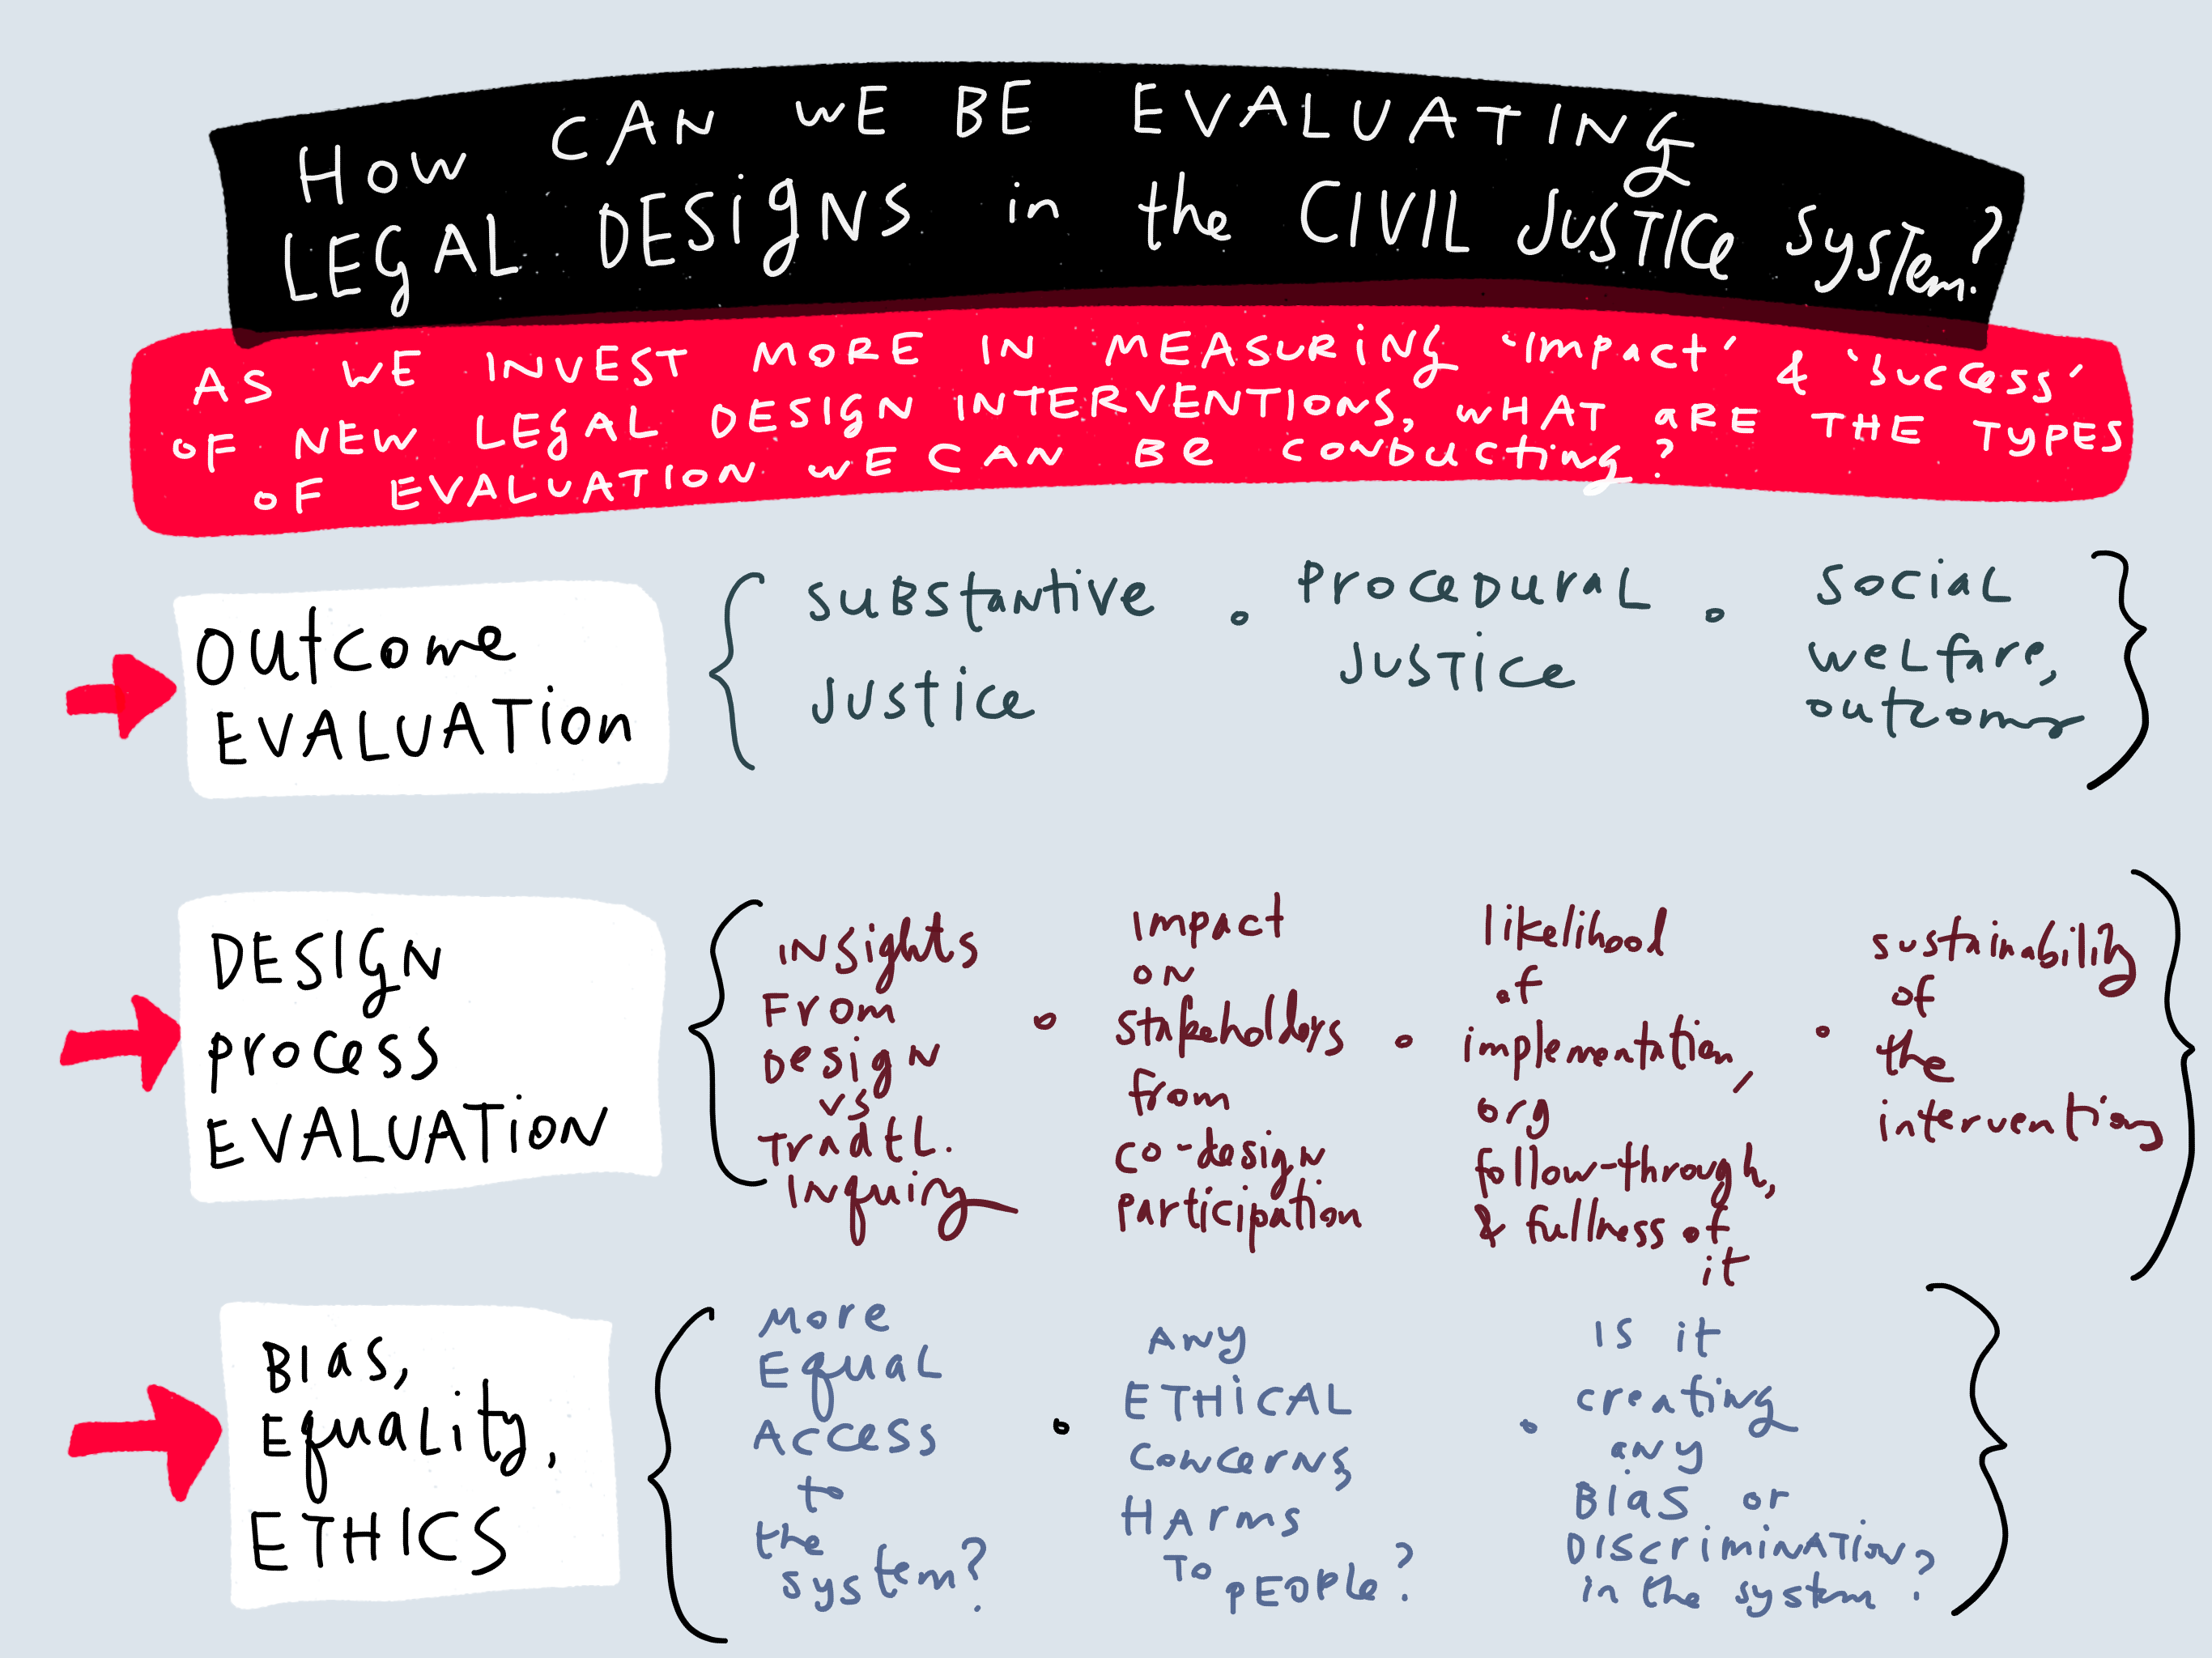 HOW CAN WE BE EVALUATING
LEGAL DESIGNS in the CIVIL JUSTICE SYSTEM?
AS WE INVEST MORE IN MEASURING 'IMPACT' & 'SUCCESS'
OF NEW LEGAL DESIGN INTERVENTIONS, WHAT ARE THE TYPES
OF EVALUATION WE CAN BE CONDUCTING?
OUTCOME
EVALUATION
SUBSTANTIVE
JUSTICE
•
PROCEDURAL
JUSTICE
•
SOCIAL
WELFARE,
OUTCOMES
DESIGN
PROCESS
EVALUATION
INSIGHTS
FROM
DESIGN
VS
TRADTL.
INQUIRY
•
IMPACT
ON
stakeholders
from
co-design
participation
•
likelihood
of
implementation,
org
follow-through,
& fullness of
it
•
sustainability
of
the
interventions
BIAS,
EQUALITY,
ETHICS
MORE
EQUAL
ACCESS
to
the
system?
•
ANY
ETHICAL
CONCERNS,
HARMS
TO PEOPLE?
•
IS it
creating
any
BIAS or
DISCRIMINATION
in the system?